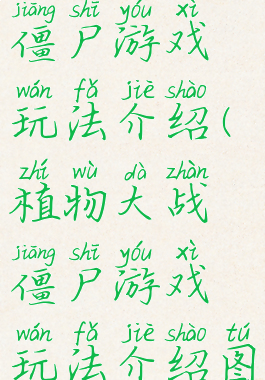 jiāng shī yóu xì
僵尸游戏
wán fǎ jiè shào
玩法介绍(
zhí wù dà zhàn
植物大战
jiāng shī yóu xì
僵尸游戏
wán fǎ jiè shào tú
玩法介绍图